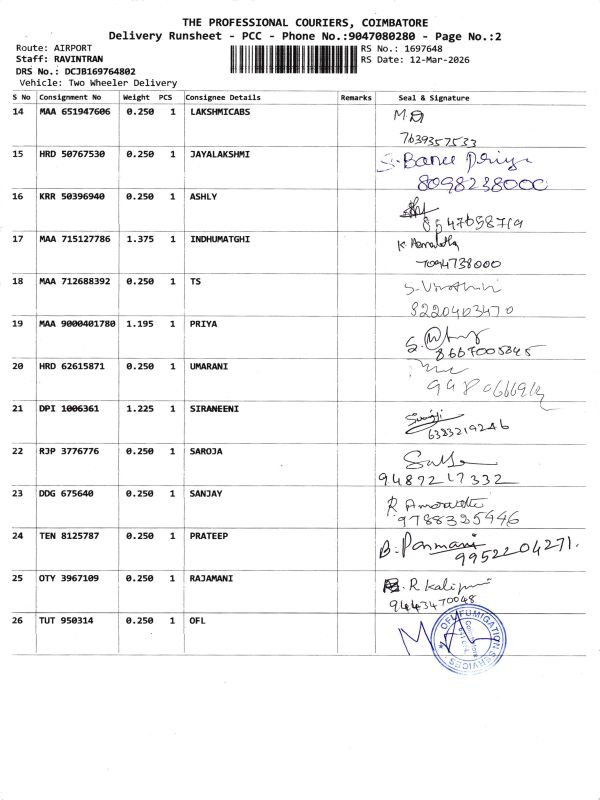 THE PROFESSIONAL COURIERS, COIMBATORE
Delivery Runsheet - PCC - Phone No.:9047080280 - Page No.:2
Route: AIRPORT
Staff: RAVINTRAN
DRS No.: DCJB169764802
Vehicle: Two Wheeler Delivery
RS No.: 1697648
RS Date: 12-Mar-2026
S No Consignment No Weight PCS Consignee Details Remarks Seal & Signature
14 MAA 651947606 0.250 1 LAKSHMICABS
7639357533
15 HRD 50767530 0.250 1 JAYALAKSHMI
8098238000
16 KRR 50396940 0.250 1 ASHLY
8547658719
17 MAA 715127786 1.375 1 INDHUMATGHI
7094738000
18 MAA 712688392 0.250 1 TS
8220403470
19 MAA 9000401780 1.195 1 PRIYA
8667005845
20 HRD 62615871 0.250 1 UMARANI
21 DPI 1006361 1.225 1 SIRANEENI
6383219246
22 RJP 3776776 0.250 1 SAROJA
9487217332
23 DDG 675640 0.250 1 SANJAY
9788325946
24 TEN 8125787 0.250 1 PRATEEP
9952204271.
25 OTY 3967109 0.250 1 RAJAMANI
9443470048
26 TUT 950314 0.250 1 OFL
OFL FUMIGATION SERVICES